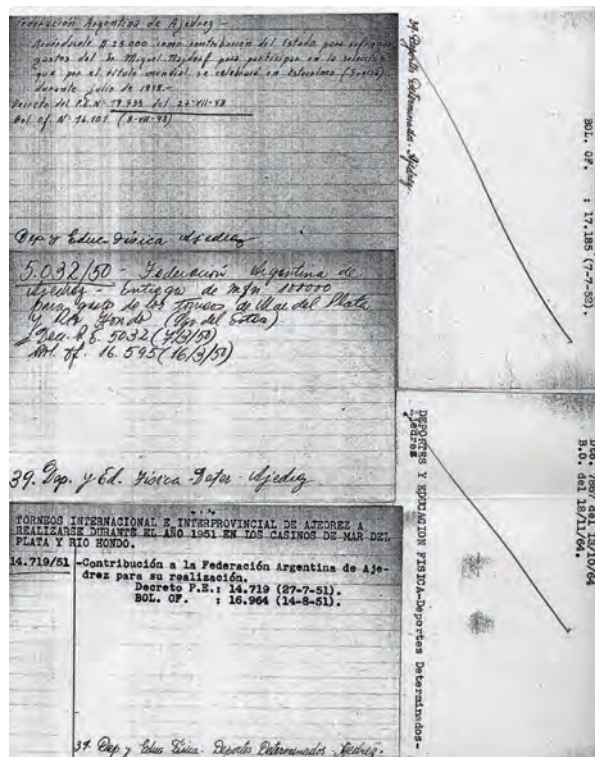 Federación Argentina de Ajedrez -
Acuérdasele $ 25.000 como contribución del Estado para sufragar
gastos del Sr. Miguel Najdorf para participar en la selección
que por el título mundial se celebrará en Estocolmo (Suecia)
durante julio de 1948.-
Decreto del P.E. Nº 19.733 del 22-VII-48
Bol. of. Nº 16.101 (2-VIII-48)
Dep y Educ. Física Ajedrez
5.032/50 - Federación Argentina de
Ajedrez - Entrega de m$n. 100000
para gastos de los torneos de Mar del Plata
y Río Hondo (Sgo. del Estero)
Dec. P.E. 5032 (7/3/50)
Bol. Of. 16.595 (16/3/50)
39. Dep. y Ed. Física - Deter - Ajedrez
TORNEOS INTERNACIONAL E INTERPROVINCIAL DE AJEDREZ A
REALIZARSE DURANTE EL AÑO 1951 EN LOS CASINOS DE MAR DEL
PLATA Y RIO HONDO.
14.719/51 -Contribución a la Federación Argentina de Aje-
drez para su realización.
Decreto P.E.: 14.719 (27-7-51).
BOL. OF. : 16.964 (14-8-51).
39. Dep y Educ. Física - Deportes Determinados - Ajedrez.
BOL. OF. : 17.185 (7-7-52).
39. Deportes Determinados - Ajedrez.
Dto. 7867 del 13/10/64
B.O. del 18/11/64.
DEPORTES Y EDUCACION FISICA-Deportes Determinados-
Ajedrez